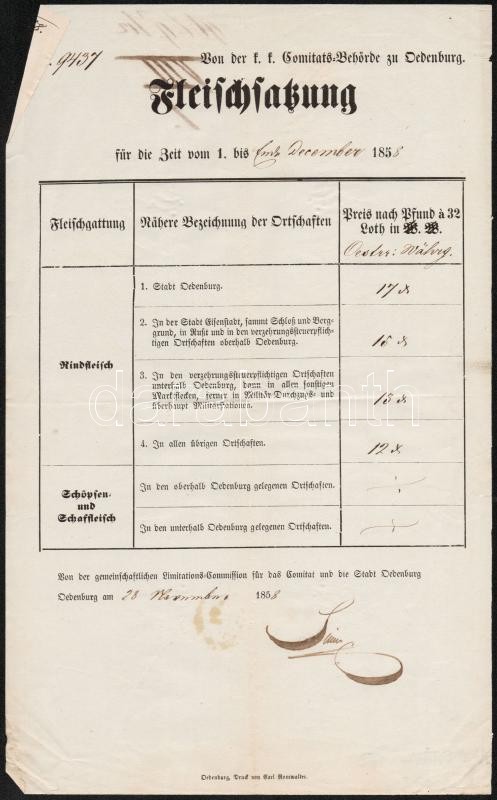 9437
Von der k. k. Comitats-Behörde zu Oedenburg.
Fleischsatzung
für die Zeit vom 1. bis Ende December 1858
Fleischgattung
Nähere Bezeichnung der Ortschaften
Preis nach Pfund à 32
Loth in W. W.
Oestrr: Währg.
Rindfleisch
1. Stadt Oedenburg.
17 x
2. In der Stadt Eisenstadt, sammt Schloß und Berg-
grund, in Rust und in den verzehrungssteuerpflich-
tigen Ortschaften oberhalb Oedenburg.
15 x
3. In den verzehrungssteuerpflichtigen Ortschaften
unterhalb Oedenburg, dann in allen sonstigen
Marktflecken, ferner in Militär-Durchzugs- und
überhaupt Militärstationen.
15 x
4. In allen übrigen Ortschaften.
12 x.
Schöpsen-
und
Schaffleisch
In den oberhalb Oedenburg gelegenen Ortschaften.
In den unterhalb Oedenburg gelegenen Ortschaften.
Von der gemeinschaftlichen Limitations-Commission für das Comitat und die Stadt Oedenburg
Oedenburg am 28 November 1858
Oedenburg, Druck von Carl Romwalter.
darabanth